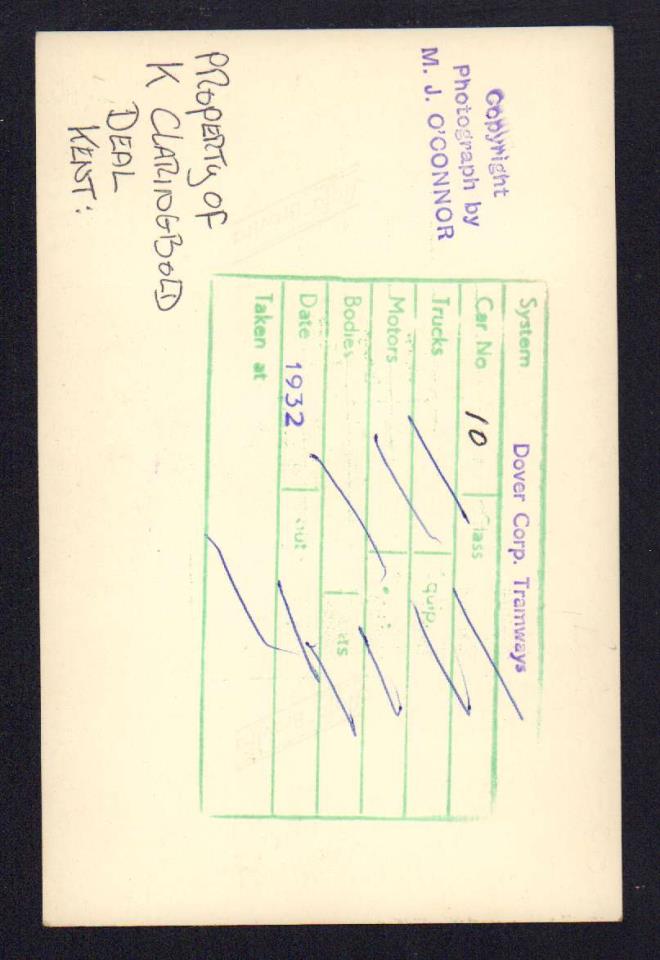 Copyright
Photograph by
M. J. O'CONNOR
System Dover Corp. Tramways
Car No 10 Class
Trucks quip.
Motors
Bodies ts
Date 1932 out
Taken at
PROPERTY OF
K CLARINGBOLD
DEAL
KENT: